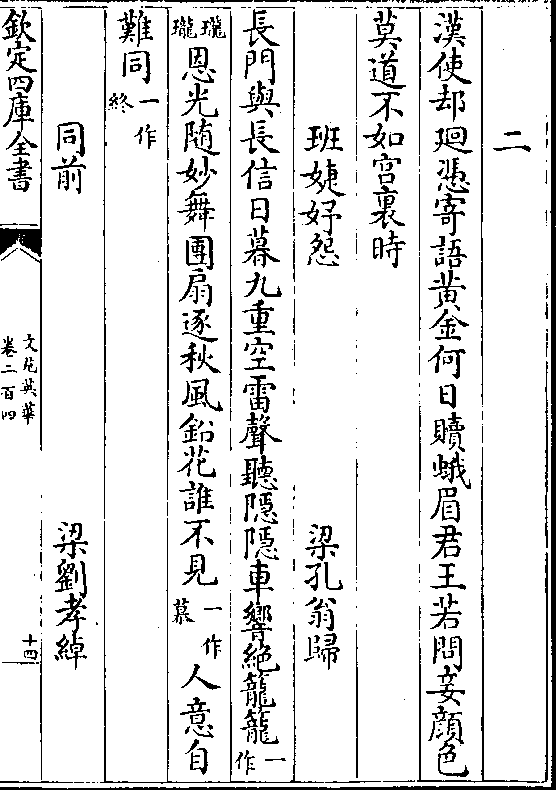 二
漢使却廻憑寄語黄金何日贖蛾眉君王若問妾顔色
莫道不如宫裏時
班婕妤怨　梁孔翁歸
長門與長信日暮九重空雷聲聽隠隠車響絶籠籠一作
瓏瓏恩光随妙舞團扇逐秋風鉛花誰不見一作慕人意自
難同一作終
同前　梁劉孝綽
欽定四庫全書
文苑英華
卷二百四
十四